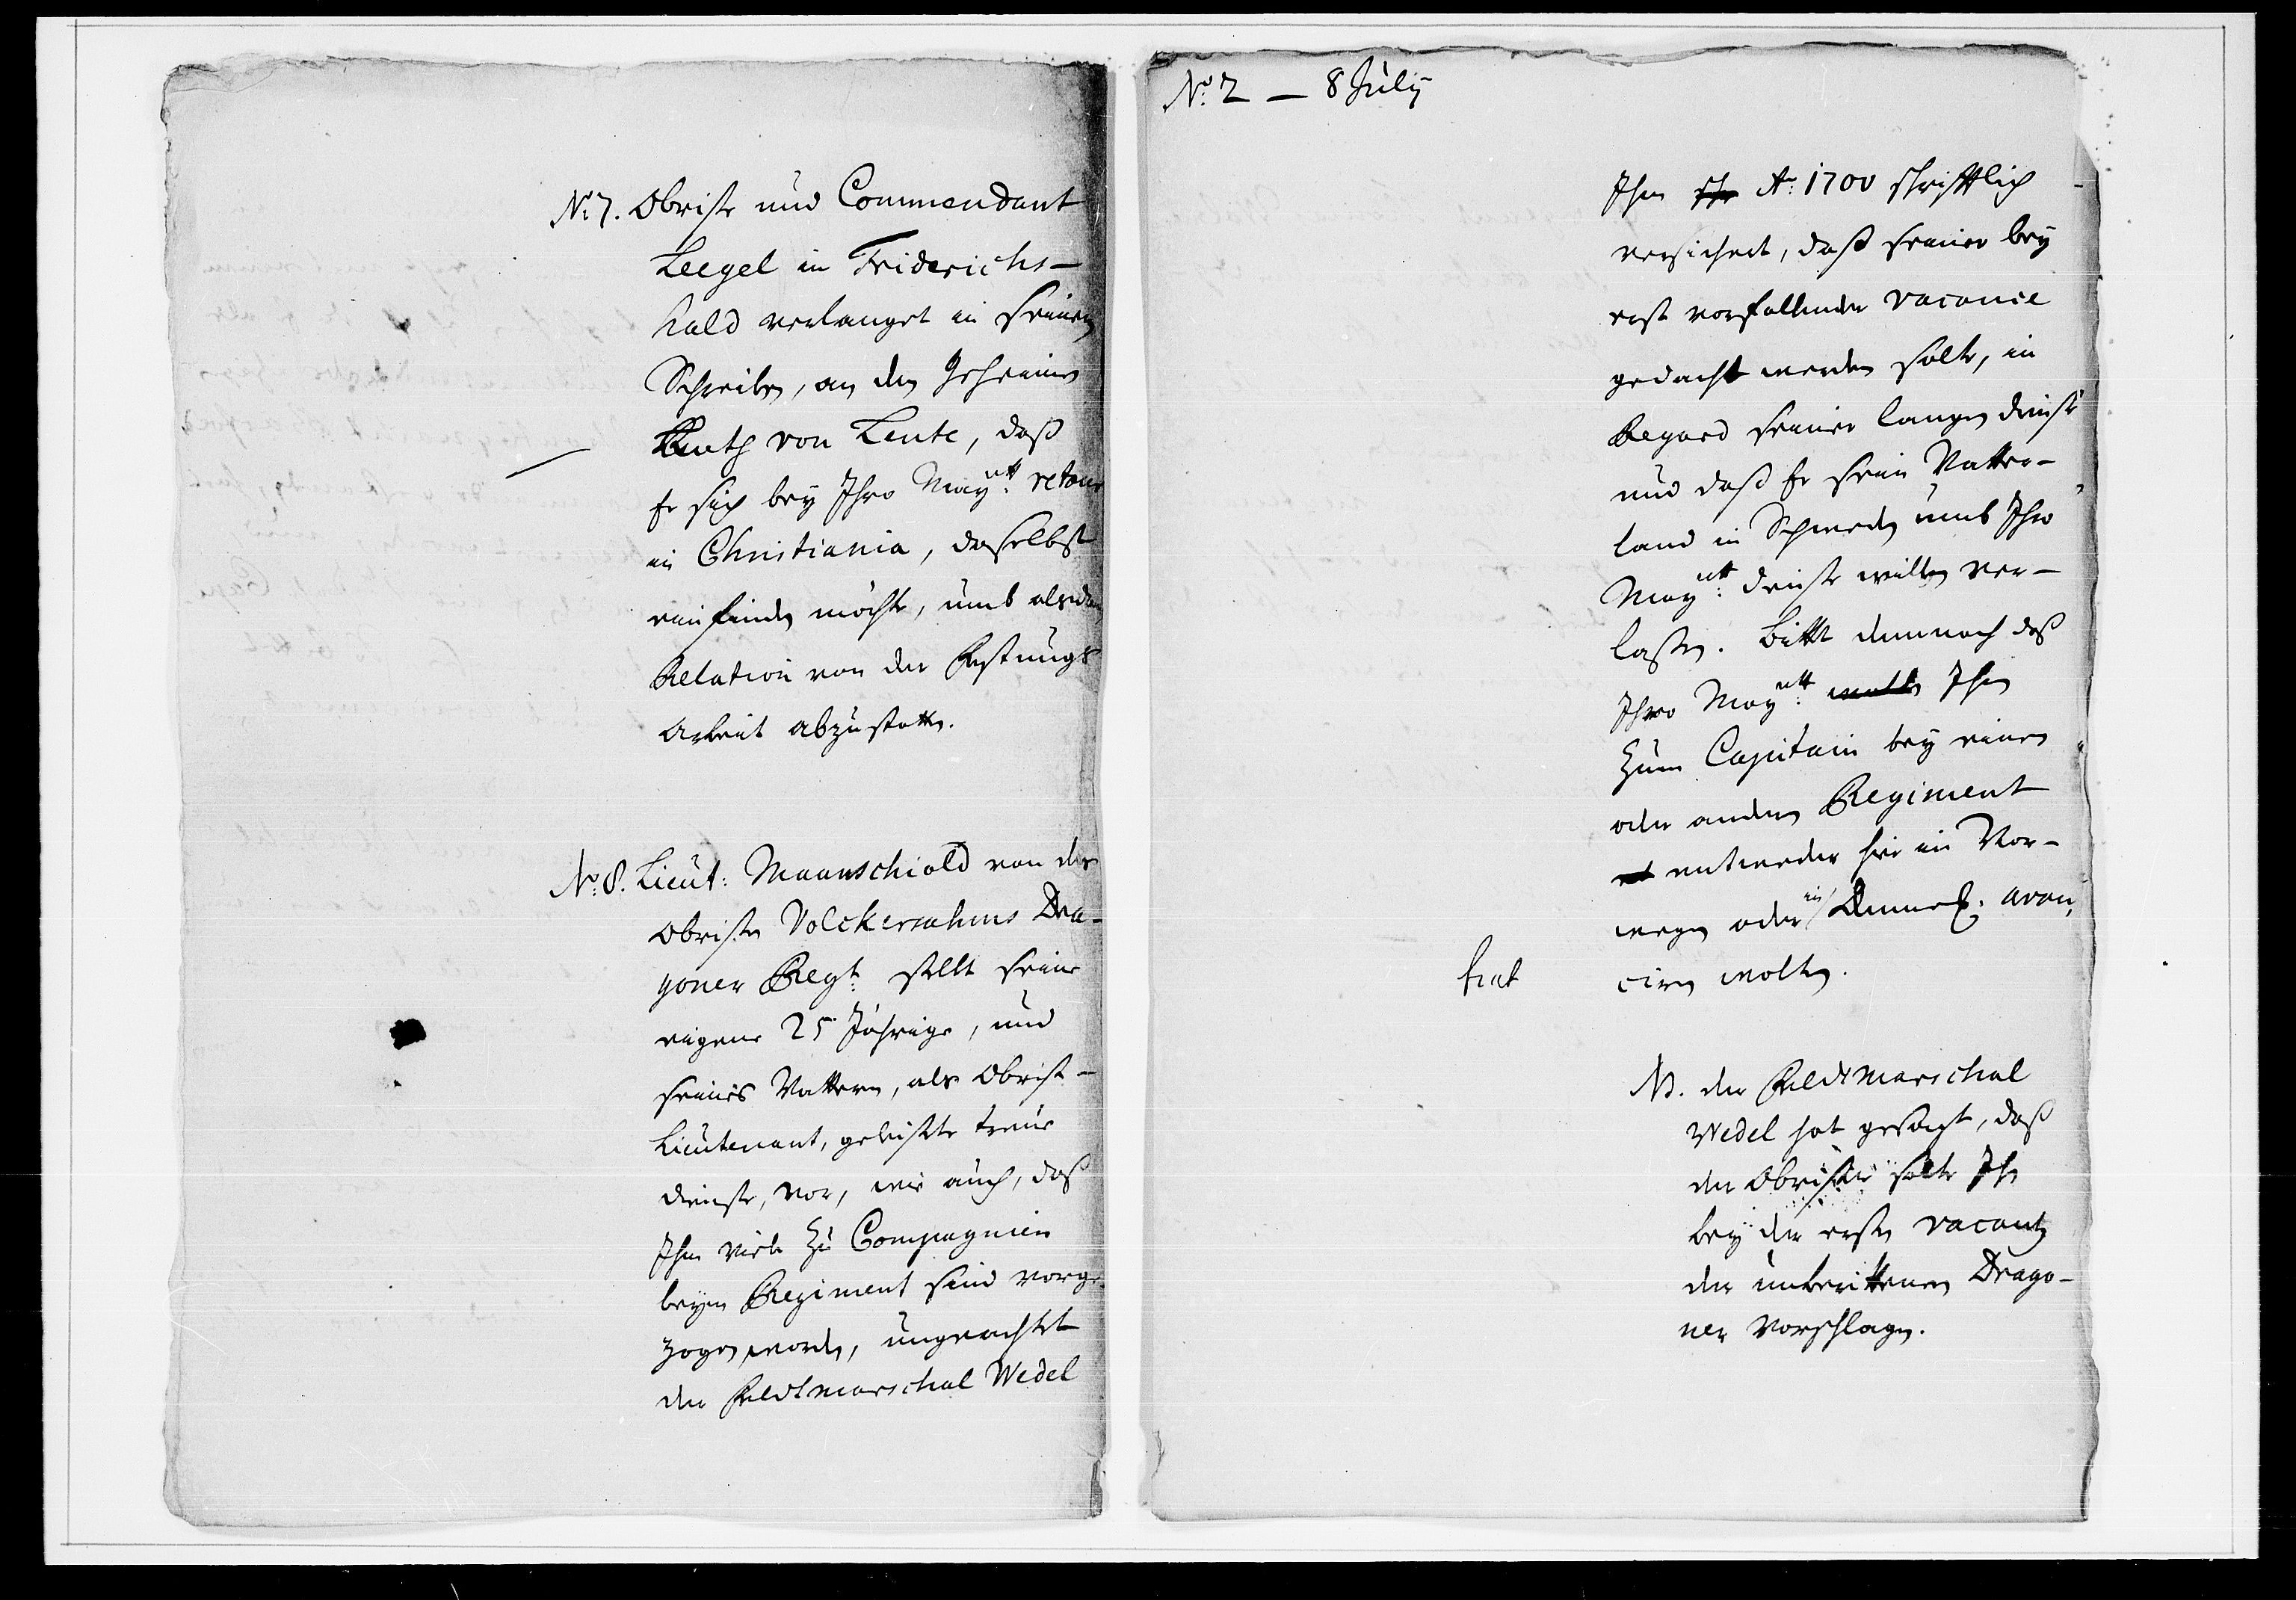 No: 7. Obrister und Commendant
Leegel in Friderichs-
hald verlanget in seinem
Schreiben, an den Geheimen
Rath von Lente, daß
Er sich bey Ihro Maytt: retour
in Christiania, daselbst
einfinden möchte, umb alsdan
Relation von der Festungs
Arbeit abzustatten.
No: 8. Lieut: Maanschiold von des
Obristen Volckersahms Dra-
goner Regt: stellt seine
eigene 25 Jährige, und
seines Vattern, als Obrist-
Lieutenant, geleistete treue
dienste, vor, wie auch, daß
Ihm viele zu Compagnien
beym Regiment sind vorge-
zogen worden, ungeachtet
der Feldtmarschal Wedel
No: 2 — 8 Julij
Ihm Ao: 1700 schrifftlich
versichert, daß seiner bey
erst vorfallender vacance
gedacht werden solte, in
Regard seiner langen dienste
und daß Er sein Vatter-
land in Schweden umb Ihro
Maytt: dienste willen ver-
laßen. Bittet demnach daß
Ihro Maytt: wolten Ihn
zum Capitain bey einem
oder andern Regiment
entweder hie in Nor-
wegen oder in Dennem: avan-
ciren wolten.
fiat
NB. der Feldtmarschal
Wedel hat gesagt, daß
der Obrister solte Ihn
bey der ersten vacantz
der unberittenen Drago-
ner vorschlagen.